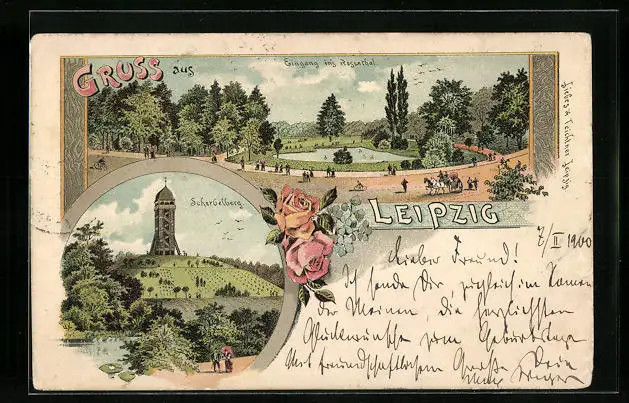 GRUSS aus
Eingang in's Rosenthal.
Scherbelberg
LEIPZIG
7/II 1900
Lieber Freund!
Ich sende Dir, zugleich im Namen
der Meinen, die herzlichsten
Glückwünsche zum Geburtstage
Mit freundschaftlichem Grusse Dein